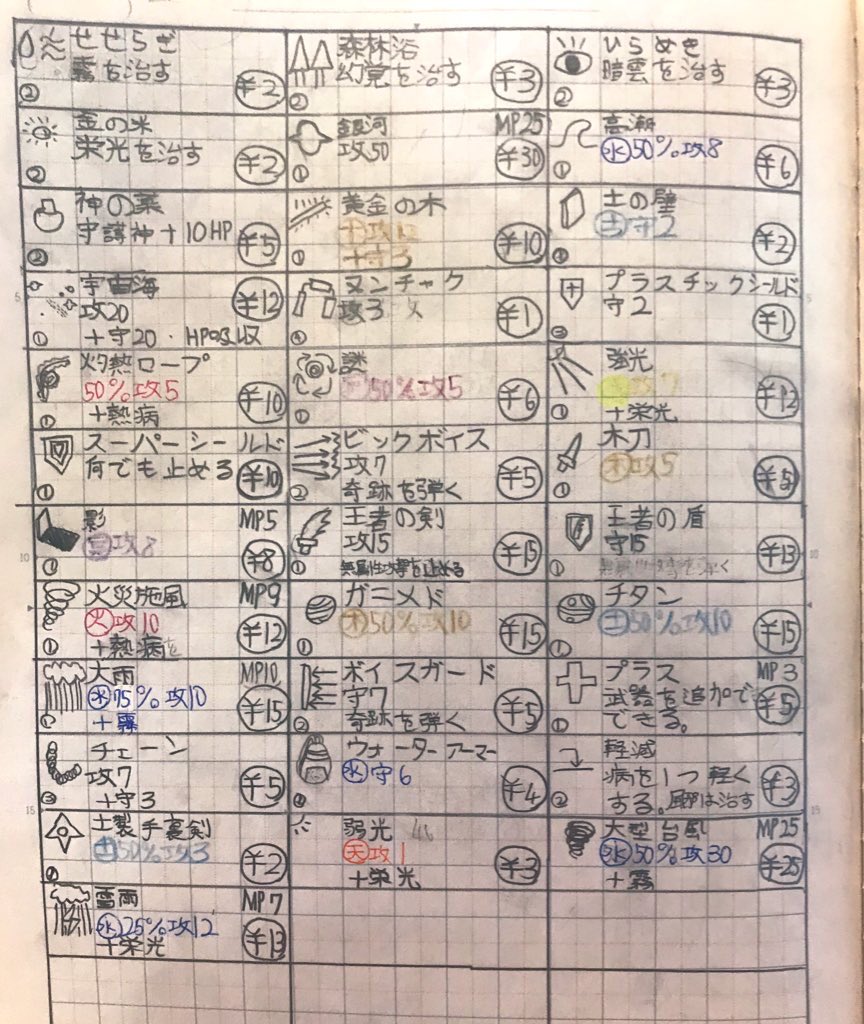 せせらぎ
霧を治す
¥2
②
森林浴
幻覚を治す
¥3
②
ひらめき
暗雲を治す
¥3
②
金の米
栄光を治す
¥2
②
銀河 MP25
攻50
¥30
①
高潮
水50%攻8
¥6
①
神の薬
守護神+10HP
¥5
②
黄金の木
+守3
¥10
①
土の壁
土守2
¥2
宇宙海
攻20
¥12
+守20・HP吸収
①
ヌンチャク
攻3
¥1
プラスチックシールド
守2
¥1
灼熱ロープ
50%攻5
¥10
+熱病
①
謎
50%攻5
¥6
①
強光
攻7
¥12
+栄光
①
スーパーシールド
何でも止める
¥10
①
ビックボイス
攻7
¥5
奇跡を弾く
②
木刀
木攻5
¥5
①
影 MP5
攻8
¥8
①
王者の剣
攻15
¥15
無属性攻撃を止める
①
王者の盾
守15
¥13
①
火災旋風 MP9
火攻10
¥12
+熱病
①
ガニメド
木50%攻10
¥15
①
チタン
土50%攻10
¥15
①
大雨 MP10
水75%攻10
¥15
+霧
ボイスガード
守7
¥5
奇跡を弾く
②
プラス MP3
武器を追加で
できる。
¥5
①
チェーン
攻7
¥5
+守3
ウォーターアーマー
水守6
¥4
軽減
病を1つ軽く
する。風邪は治す
¥3
②
土製手裏剣
土50%攻3
¥2
弱光
天攻1
¥3
+栄光
大型台風 MP25
水50%攻30
¥25
+霧
雷雨 MP7
水25%攻12
¥13
+栄光